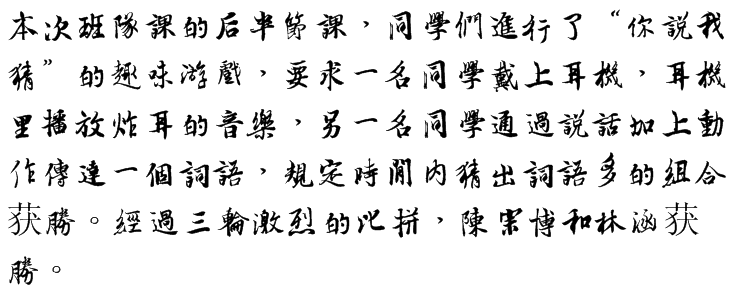 本次班隊課的后半節課，同學們進行了“你説我
猜”的趣味游戲，要求一名同學戴上耳機，耳機
里播放炸耳的音樂，另一名同學通過説話加上動
作傳達一個詞語，規定時間内猜出詞語多的組合
获勝。經過三輪激烈的比拼，陳宗博和林涵获
勝。